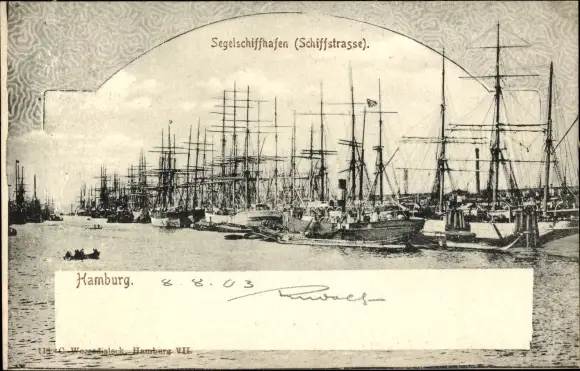 Segelschiffhafen (Schiffstrasse).
Hamburg. 8.8.03
Rudolf
C. Hamburg VII.